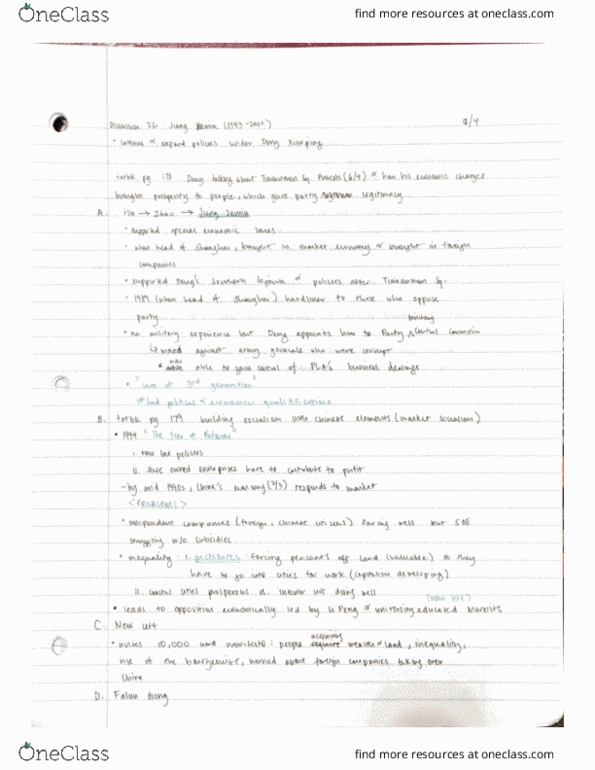 OneClass
find more resources at oneclass.com
Discussion 22: Jiang Zemin (1993-2002)
8/4
• continue & expand policies under Deng Xiaoping
txtbk pg 178 Deng talking about Tiananmen Sq. Protests (6/4) & how his economic changes
brought prosperity to people, which gave party legitimacy
A. Hu → Zhao → Jiang Zemin
• supported special economic zones
• when head of Shanghai, brought in market economy & brought in foreign
companies
• supported Deng's southern & policies after Tiananmen Sq.
• 1989 (when head of Shanghai) hardliner to those who oppose
party
• no military experience but Deng appoints him to Party Military Central Commission
↳ moved against army generals who were corrupt
• was able to gain control of PLA's business dealings
• "core of 3rd generation"
* had political & economic qualifications
B. txtbk pg 179 building socialism uses chinese elements (market socialism)
• 1994 "The Year of Reforms"
i. new tax policies
ii. state owned enterprises have to contribute to profit
- by mid 1990s, China's economy (2/3) responds to market
<PROBLEMS>
• independent companies (foreign, chinese citizens) faring well but SOE
struggling w/o subsidies
• inequality: i. enclosures: forcing peasants off land (valuable) so they
have to go into cities for work (capitalism developing)
ii. coastal cities prosperous vs. interior not doing well
(New Left)
• leads to opposition economically led by Li Peng & university educated Marxists
C. New Left
• writes 10,000 word manifesto: people acquiring wealth & land, inequality,
rise of the bourgeoisie, worried about foreign companies taking over
China
D. Falun Gong
OneClass
find more resources at oneclass.com